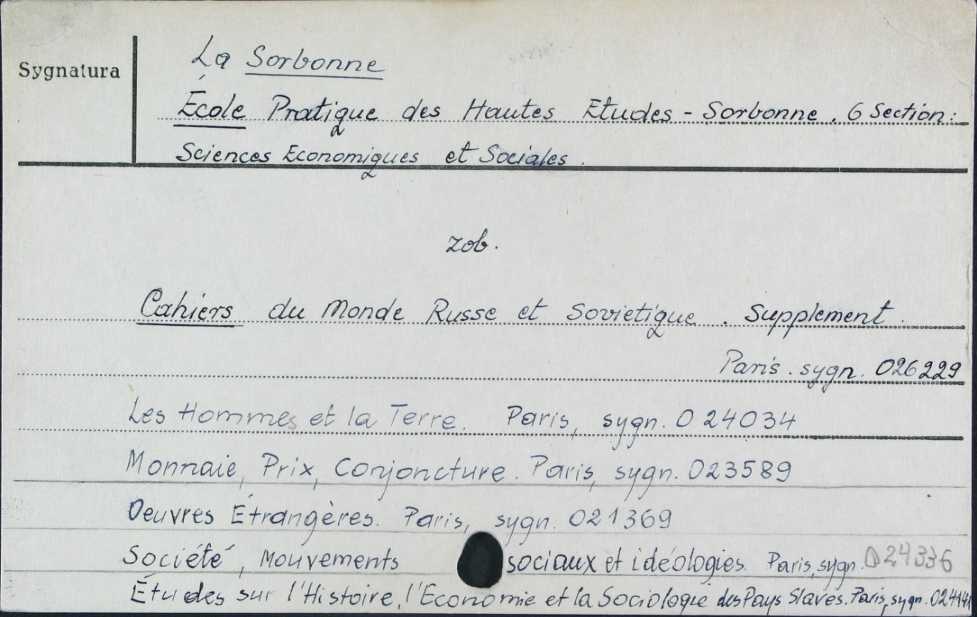 Sygnatura
La Sorbonne
École Pratique des Hautes Etudes - Sorbonne. 6 Section:
Sciences Economiques et Sociales.
zob.
Cahiers du Monde Russe et Sovietique. Supplement.
Paris. sygn. 026229
Les Hommes et la Terre. Paris, sygn. 024034
Monnaie, Prix, Conjoncture. Paris, sygn. 023589
Oeuvres Étrangères. Paris, sygn. 021369
Société, Mouvements sociaux et idéologies. Paris, sygn. 024336
Études sur l'Histoire, l'Economie et la Sociologie des Pays Slaves. Paris, sygn.